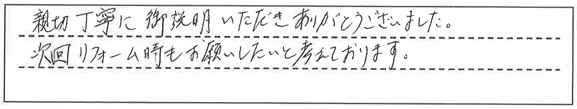 親切丁寧に御説明いただきありがとうございました。
次回リフォーム時もお願いしたいと考えております。